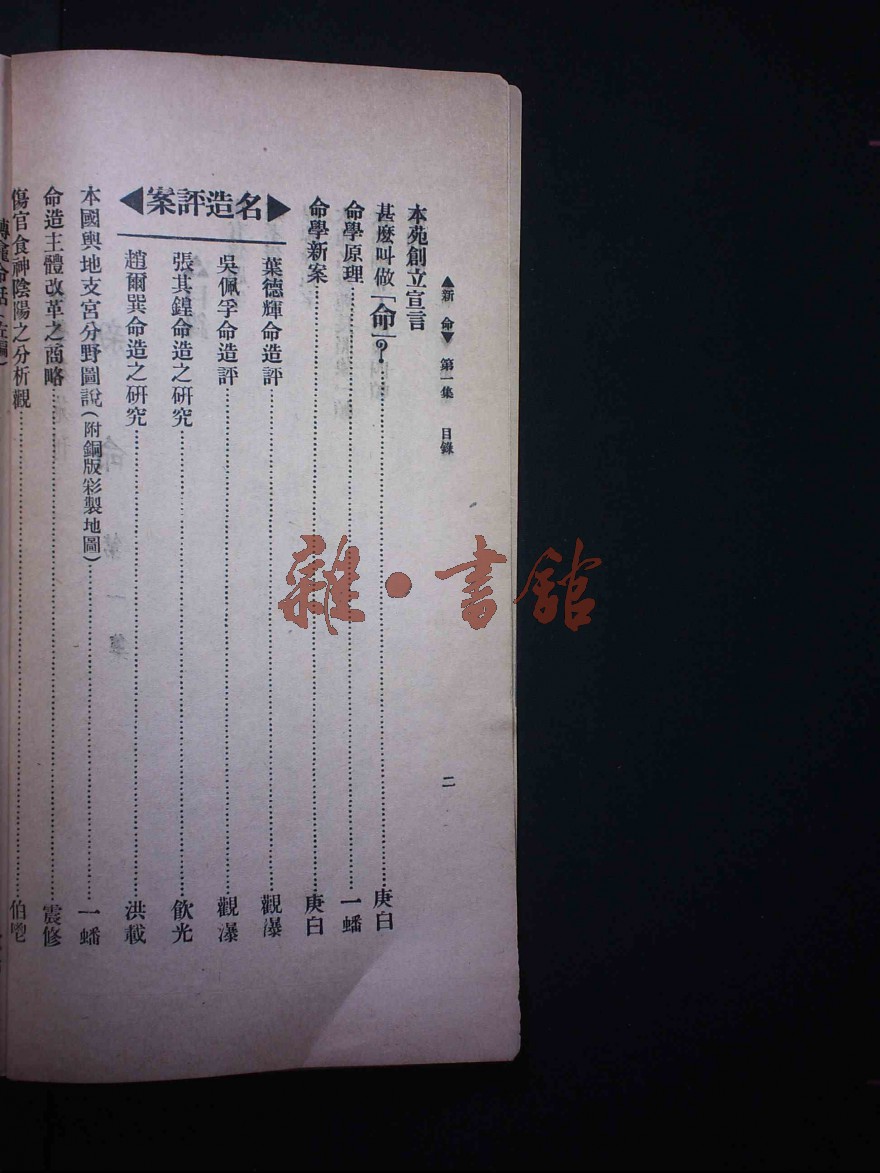 ▲新命▼ 第一集 目錄 二
本苑創立宣言
甚麽叫做「命」？……庚白
命學原理……一蟠
命學新案……庚白
▶名造評案◀
葉德輝命造評……觀瀑
吳佩孚命造評……觀瀑
張其鍠命造之研究……飲光
趙爾巽命造之研究……洪載
本國輿地支宮分野圖說(附銅版彩製地圖)……一蟠
命造主體改革之商略……震修
傷官食神陰陽之分析觀……伯
雜·書館